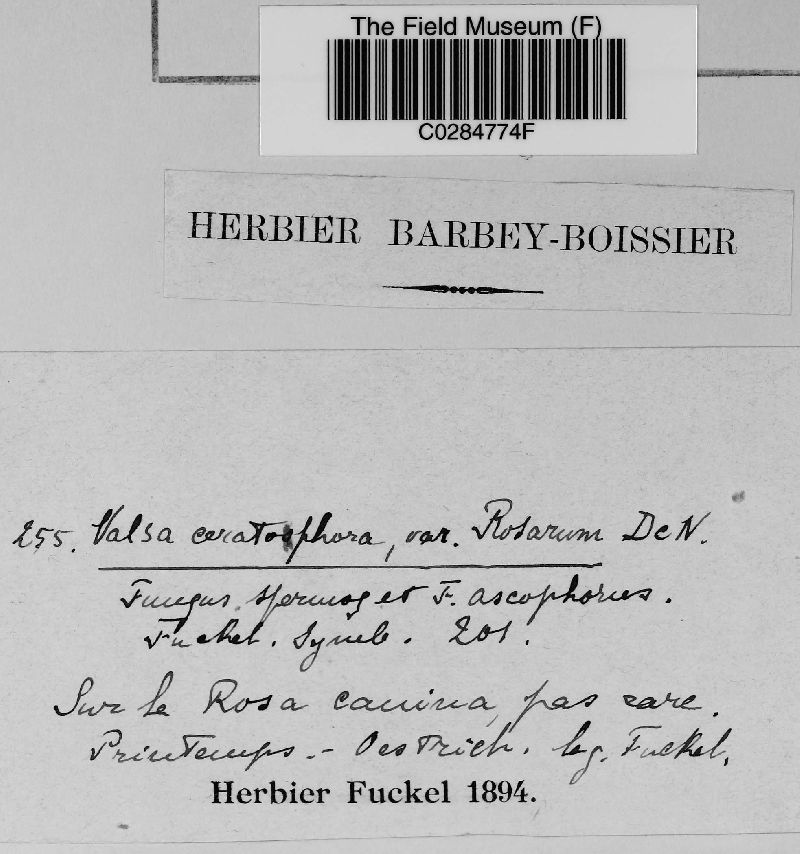 The Field Museum (F)
C0284774F
HERBIER BARBEY-BOISSIER
255. Valsa ceratophora, var. Rosarum De N.
Fungus spermog et F. ascophorus.
Fuckel. Symb. 201.
Sur le Rosa canina, pas rare.
Printemps. - Oestrich. leg. Fuckel.
Herbier Fuckel 1894.